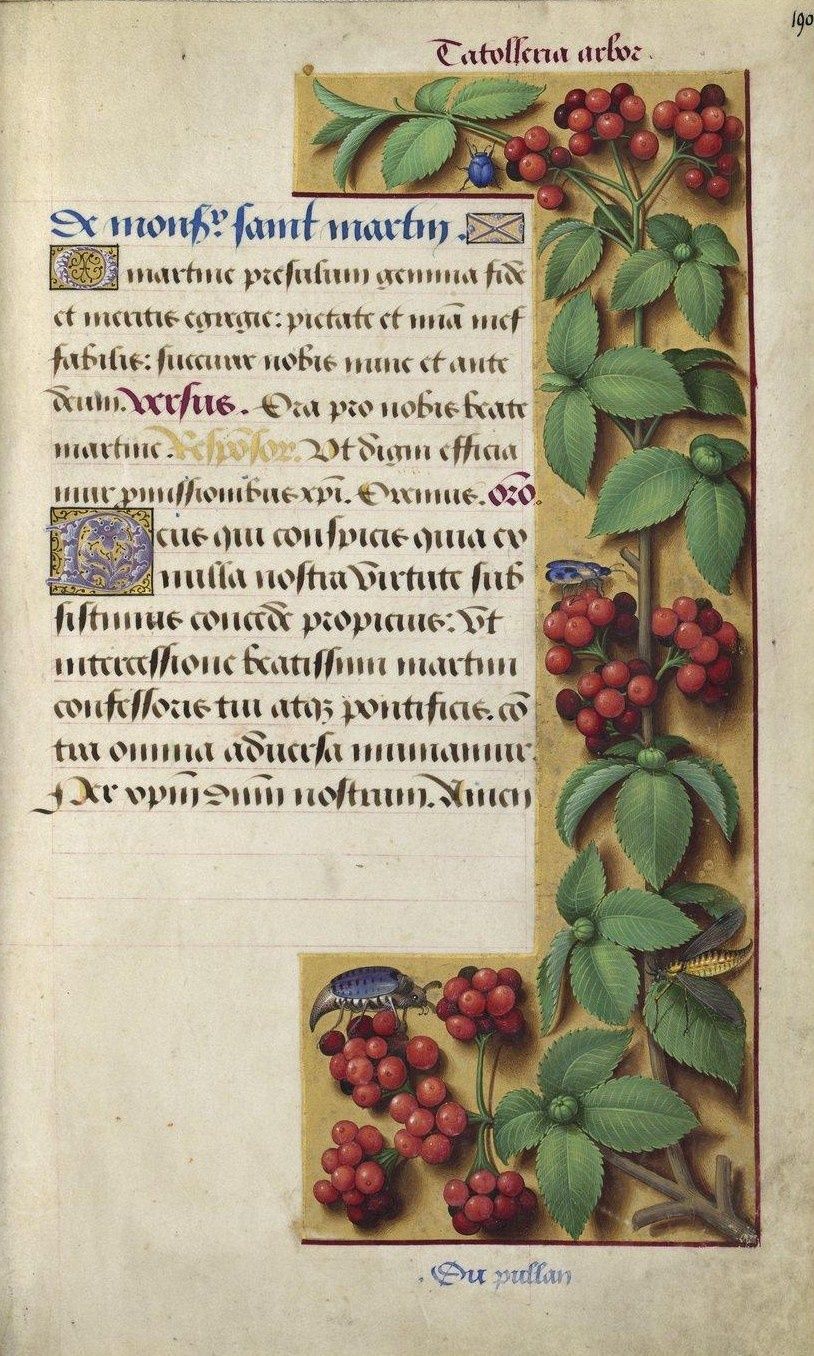 190
Tatolseria arbor.
De monsr. saint martin.
O martine presulum gemma fide
et meritis egregie: pietate et mia inef
fabilis: succurre nobis nunc et ante
deum. Versus. Ora pro nobis beate
martine. Respōsor. Vt digni efficia
mur pmissionibus xpi. Oremus. Orō.
Deus qui conspicis quia ex
nulla nostra virtute sub
sistimus concede propicius: Vt
intercessione beatissimi martini
confessoris tui atqz pontificis. cō
tra omnia aduersa muniamur.
Per xpm dnm nostrum. Amen
. Du pullan